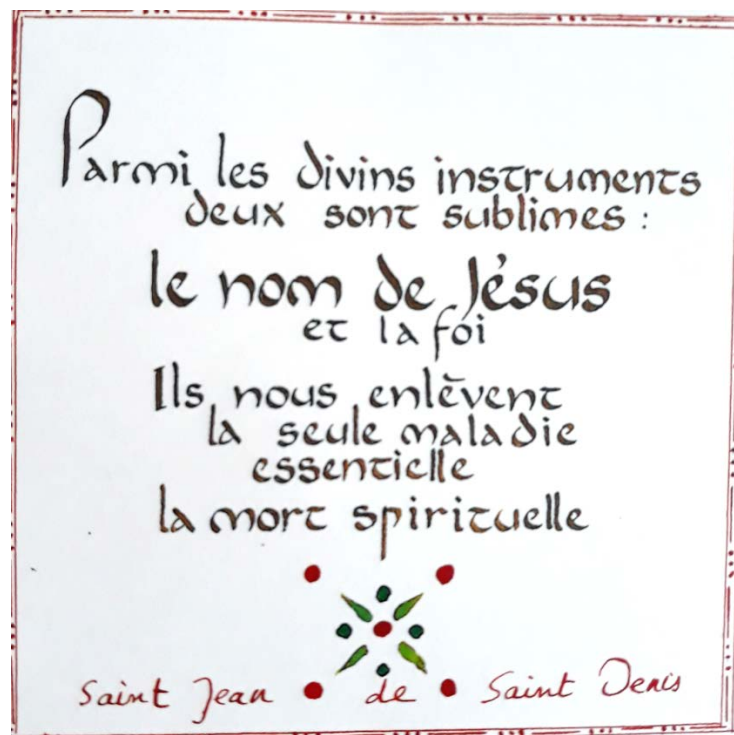 Parmi les divins instruments
deux sont sublimes :
le nom de Jésus
et la foi
Ils nous enlèvent
la seule maladie
essentielle
la mort spirituelle
Saint Jean de Saint Denis